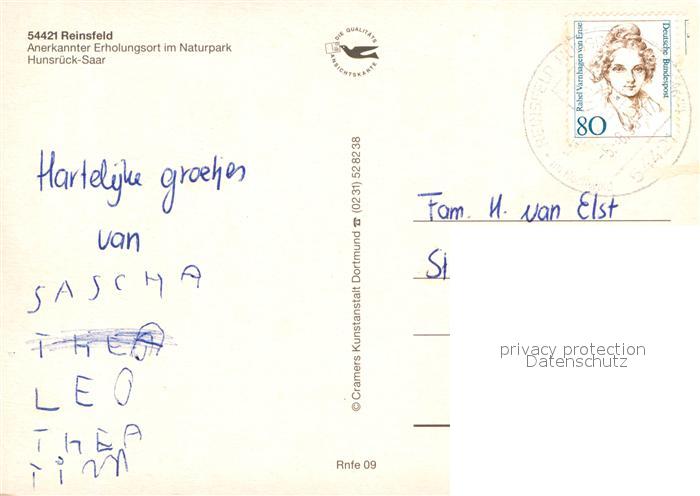 54421 Reinsfeld
Anerkannter Erholungsort im Naturpark
Hunsrück-Saar
DIE QUALITÄTS
ANSICHTSKARTE
Rahel Varnhagen von Ense
Deutsche Bundespost
80
REINSFELD
54421
Hartelijke groetjes
van
SASCHA
THEA
LEO
THEA
TiM
© Cramers Kunstanstalt Dortmund ☎ (0231) 528238
Rnfe 09
Fam. H. van Elst
Si
privacy protection
Datenschutz